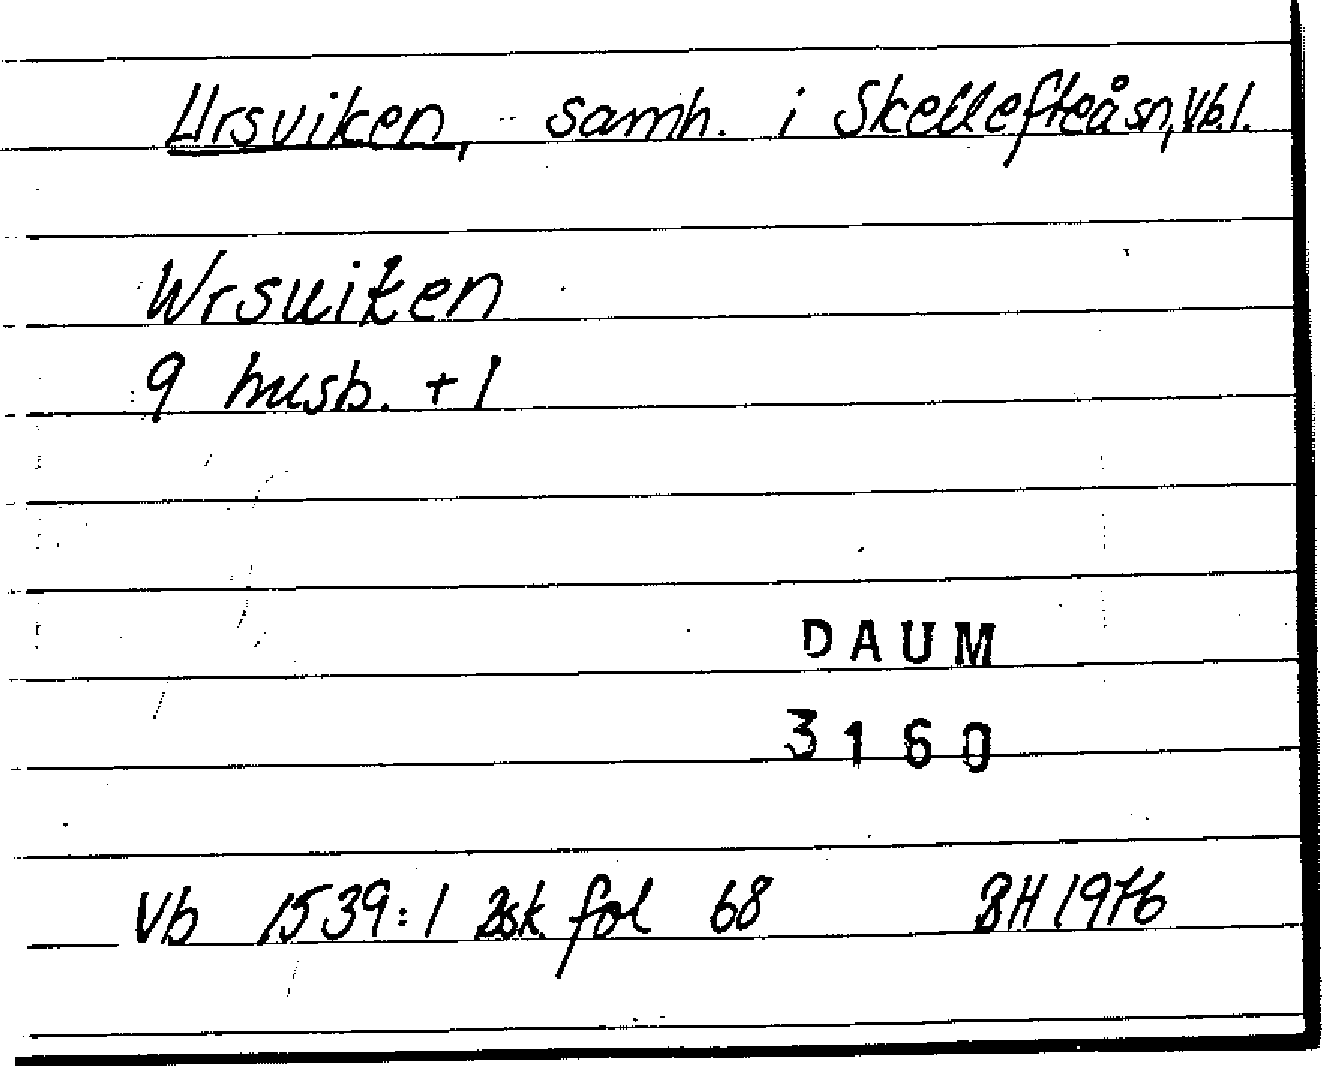 Ursviken, samh. i Skellefteå sn, Vb.l.
Wrsuiken
9 husb. + 1
DAUM
3160
Vb 1539:1 Bsk fol 68 BH 1976